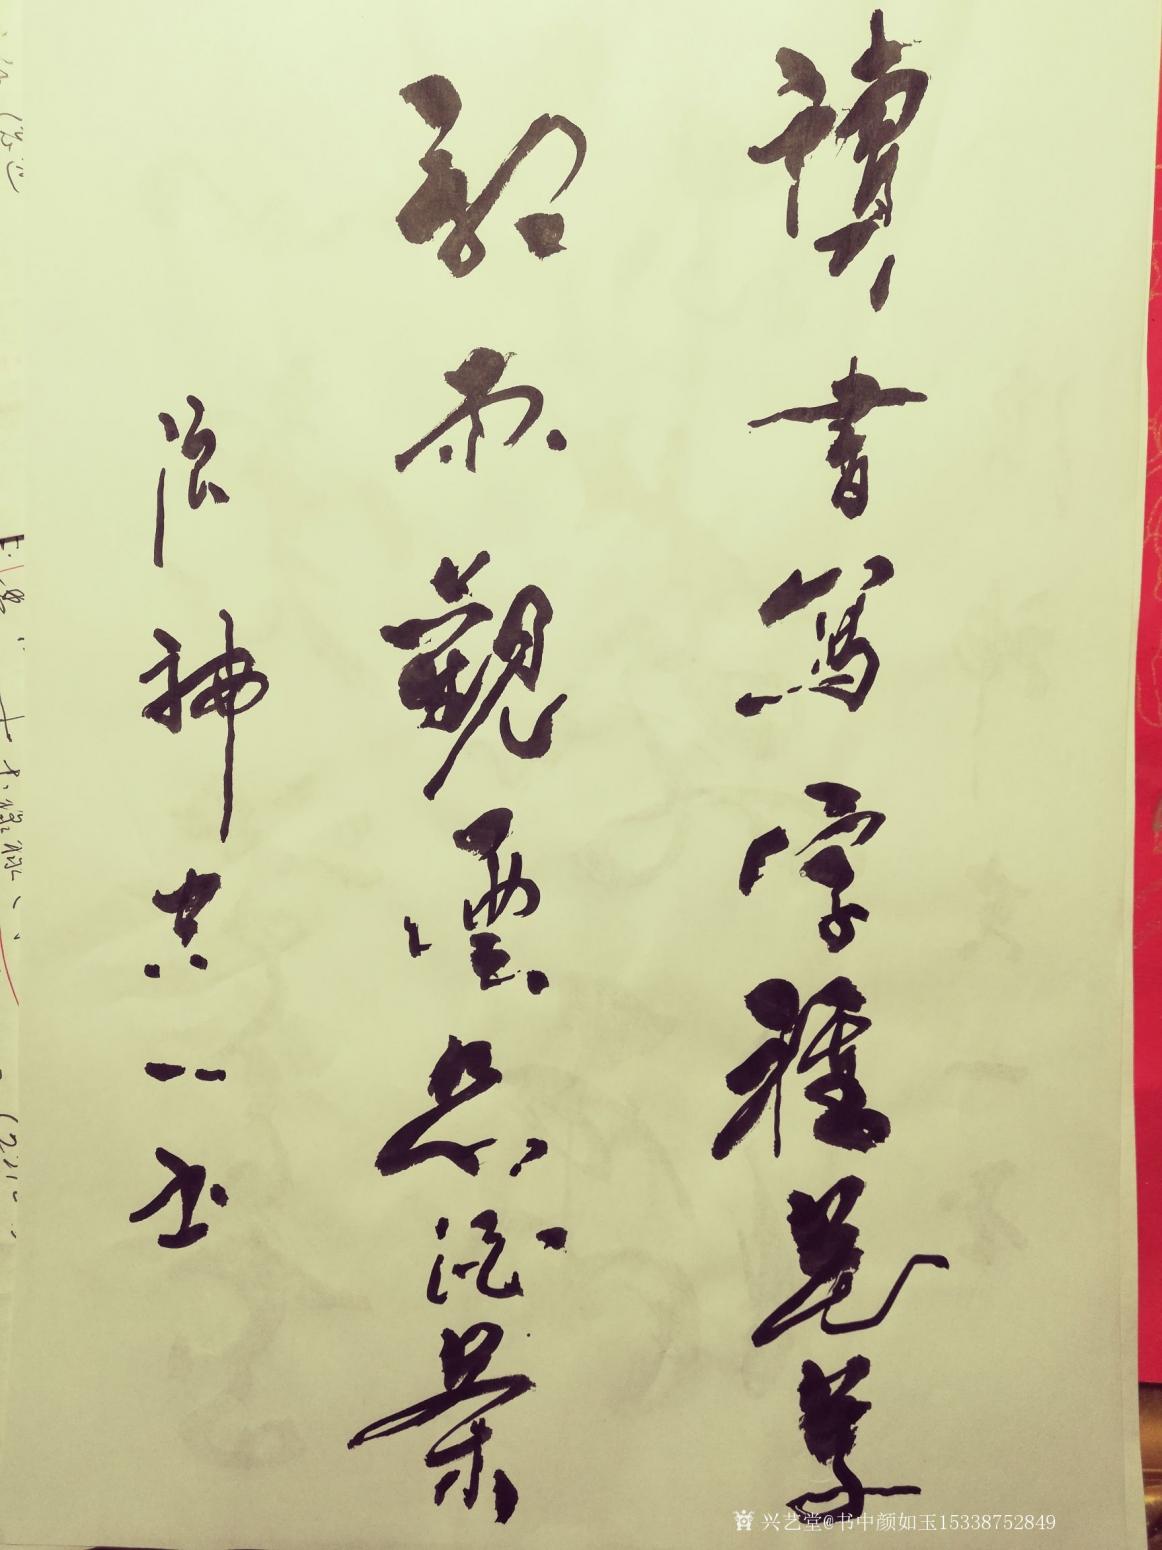 讀書寫字種花草
聽雨觀雲品酒茶
共一玉
兴艺堂@书中颜如玉15338752849